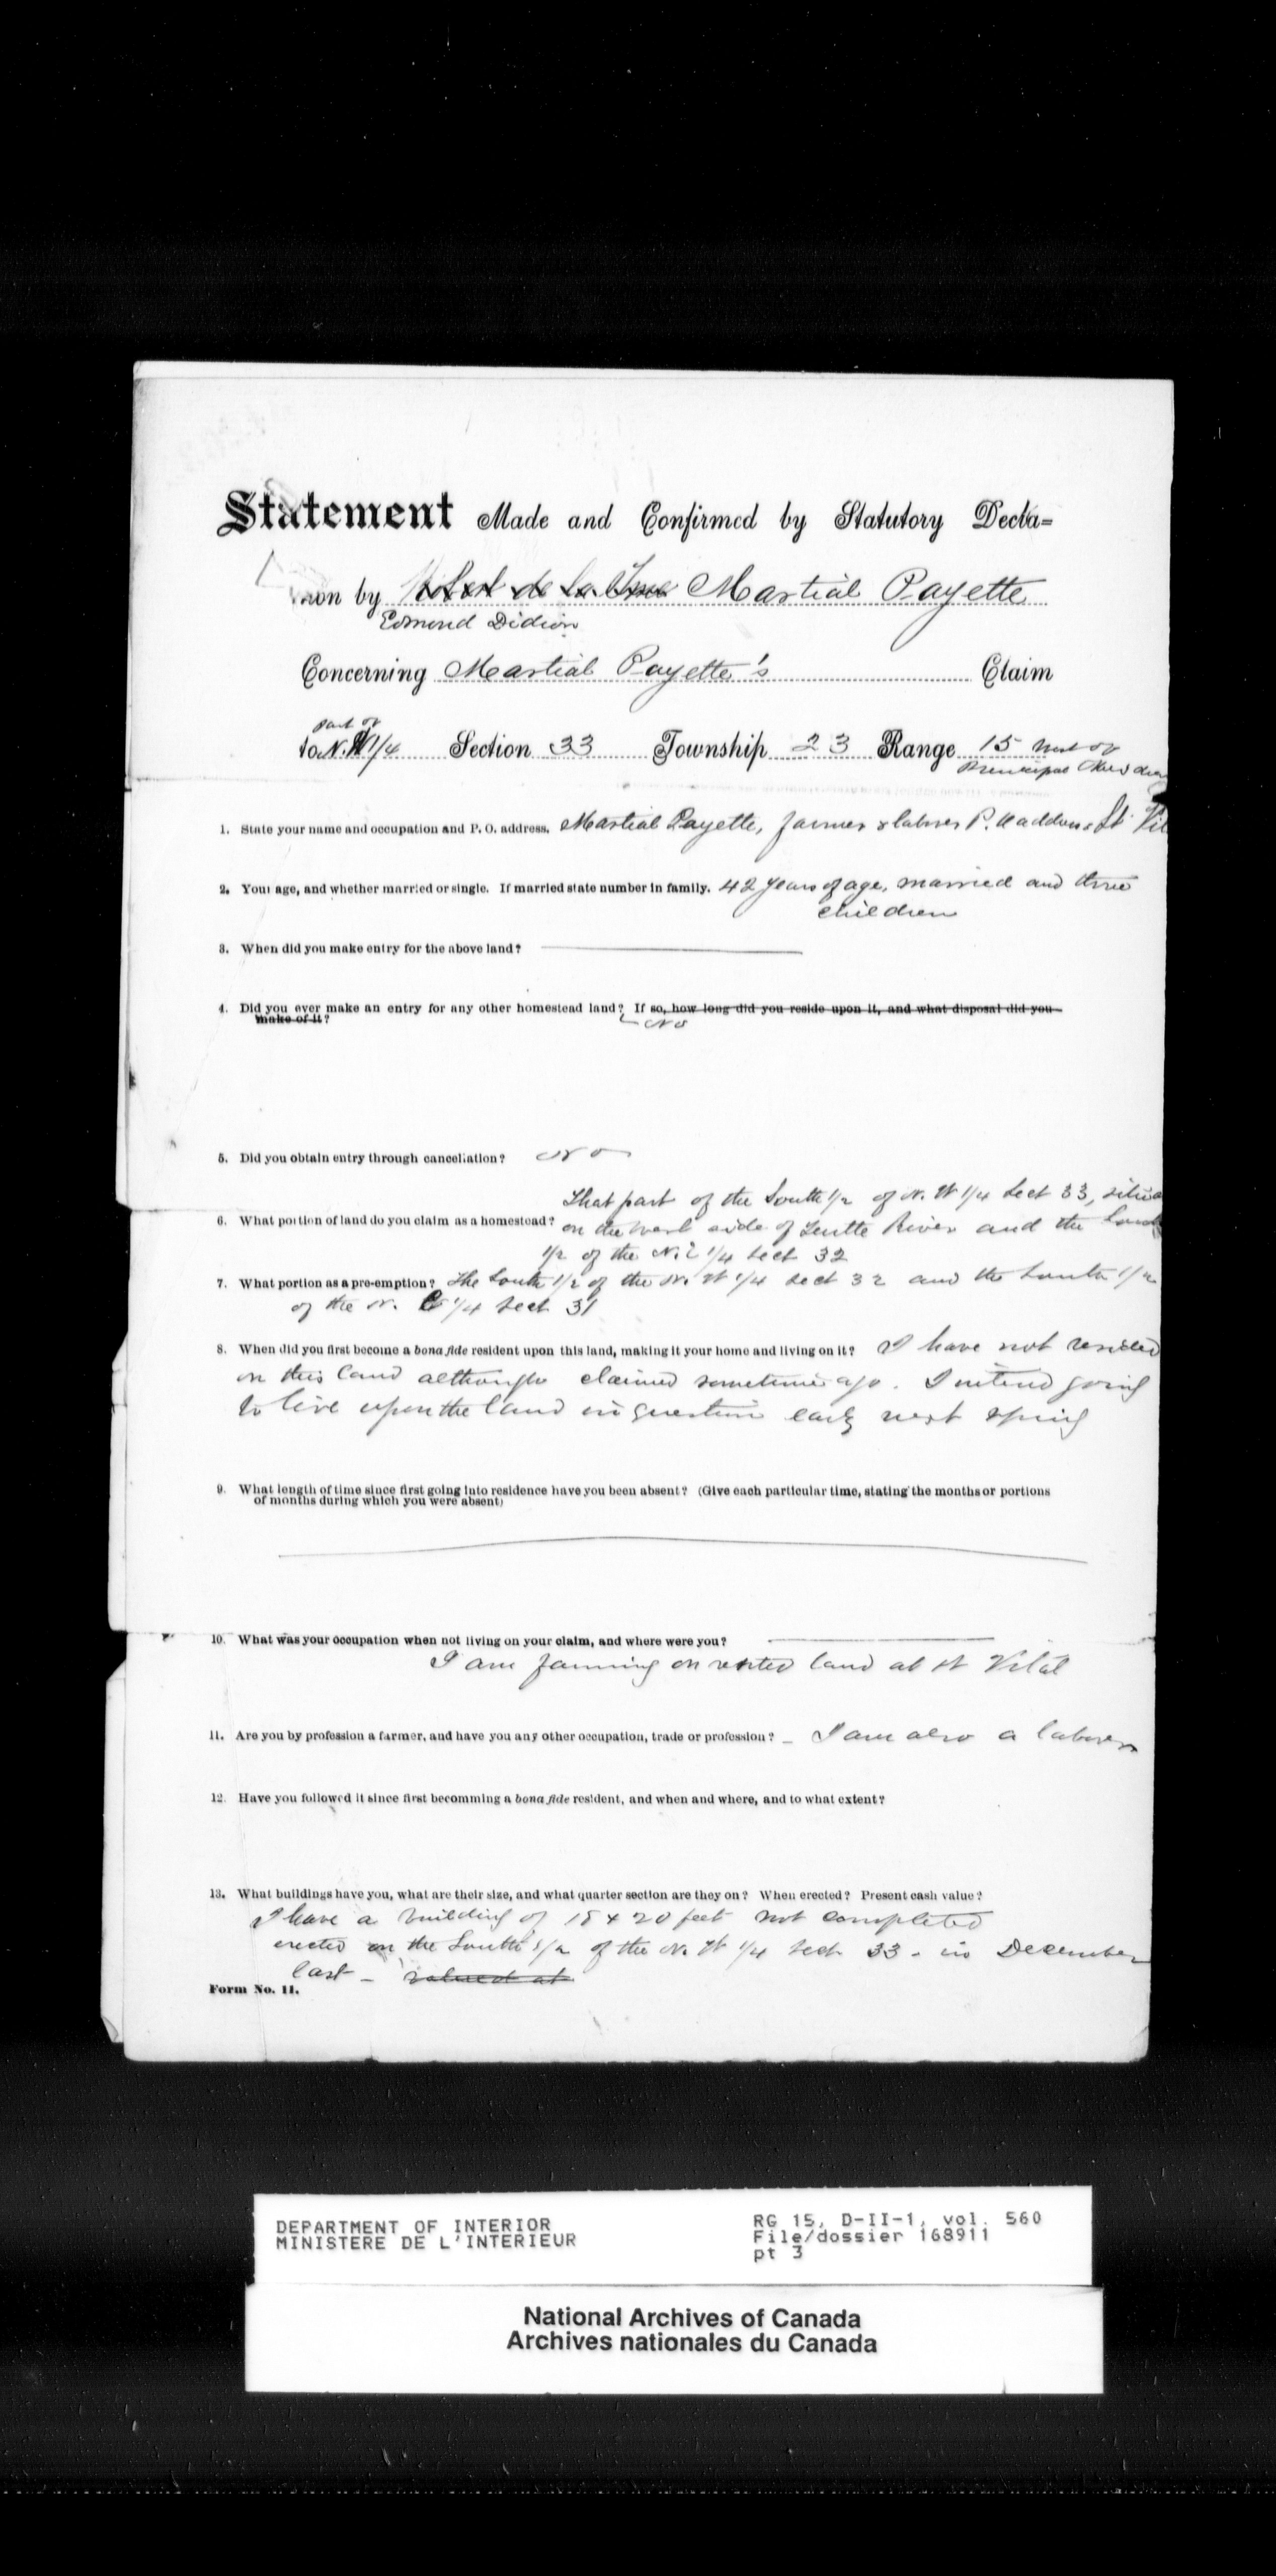 Statement Made and Confirmed by Statutory Decla=
by Martial Payette
Edmond Didion
Concerning Martial Payette's Claim
part of
to N.W 1/4 Section 33 Township 23 Range 15 West of
Principal Meridian
1. State your name and occupation and P. O. address. Martial Payette, farmer & laborer P. address St Vit
2. Your age, and whether married or single. If married state number in family. 42 years of age, married and three
children
3. When did you make entry for the above land?
4. Did you ever make an entry for any other homestead land? If so, how long did you reside upon it, and what disposal did you
make of it?
No
5. Did you obtain entry through cancellation? No
That part of the South 1/2 of N. W 1/4 Sect 33,
6. What portion of land do you claim as a homestead? on the west side of Turtle River and the South
1/2 of the N. E 1/4 Sect 32
7. What portion as a pre-emption? The South 1/2 of the N. W 1/4 Sect 32 and the South 1/2
of the N. E 1/4 Sect 31
8. When did you first become a bona fide resident upon this land, making it your home and living on it? I have not resided
on this land although claimed sometime ago. I intend going
to live upon the land in question early next spring
9. What length of time since first going into residence have you been absent? (Give each particular time, stating the months or portions
of months during which you were absent)
10. What was your occupation when not living on your claim, and where were you?
I am farming on rented land at St Vital
11. Are you by profession a farmer, and have you any other occupation, trade or profession? – I am also a laborer
12. Have you followed it since first becomming a bona fide resident, and when and where, and to what extent?
13. What buildings have you, what are their size, and what quarter section are they on? When erected? Present cash value?
I have a building of 18 x 20 feet not completed
erected on the South 1/2 of the N. W 1/4 Sect 33 - in December
last – valued at
Form No. 11.
DEPARTMENT OF INTERIOR
MINISTERE DE L'INTERIEUR
RG 15, D-II-1, vol. 560
File/dossier 168911
pt 3
National Archives of Canada
Archives nationales du Canada